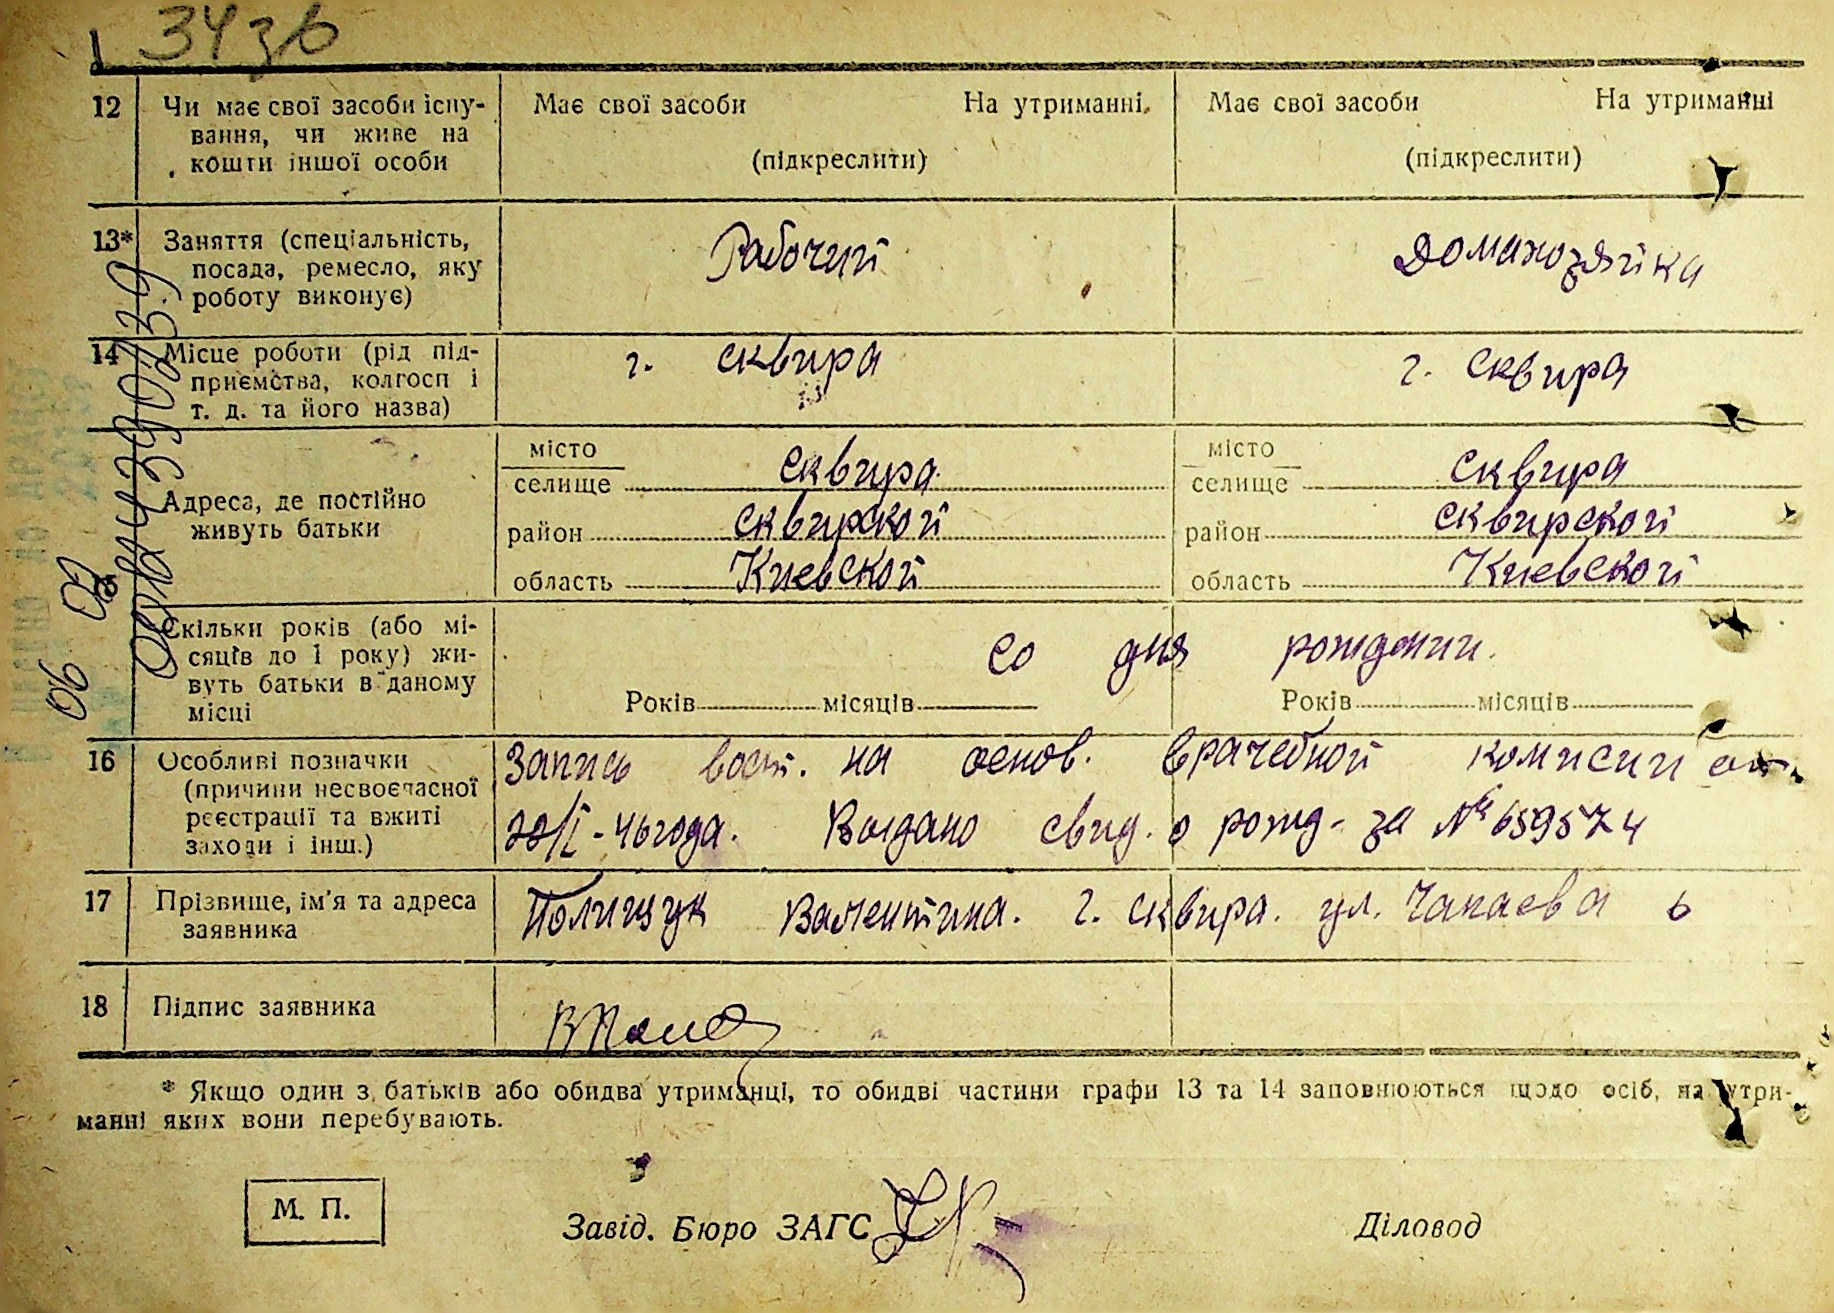 34зв
12 Чи має свої засоби існу-
вання, чи живе на
кошти іншої особи
Має свої засоби На утриманні
(підкреслити)
Має свої засоби На утриманні
(підкреслити)
13* Заняття (спеціальність,
посада, ремесло, яку
роботу виконує)
Рабочий
Домахозяйка
14 Місце роботи (рід під-
приємства, колгосп і
т. д. та його назва)
г. Сквира
г. Сквира
Адреса, де постійно
живуть батьки
місто
селище Сквира
район Сквирской
область Киевской
місто
селище Сквира
район Сквирской
область Киевской
Скільки років (або мі-
сяців до 1 року) жи-
вуть батьки в даному
місці
со дня рождении.
Років місяців
Років місяців
16 Особливі позначки
(причини несвоєчасної
реєстрації та вжиті
заходи і інш.)
Запись вост. на основ. врачебной комисии от
20/I-46 года. Выдано свид. о рожд- за № 659574
17 Прізвище, ім'я та адреса
заявника
Полищук Валентина. г. Сквира. ул. Чапаева 6
18 Підпис заявника
* Якщо один з батьків або обидва утриманці, то обидві частини графи 13 та 14 заповнюються щодо осіб, на утри-
манні яких вони перебувають.
М. П.
Завід. Бюро ЗАГС
Діловод